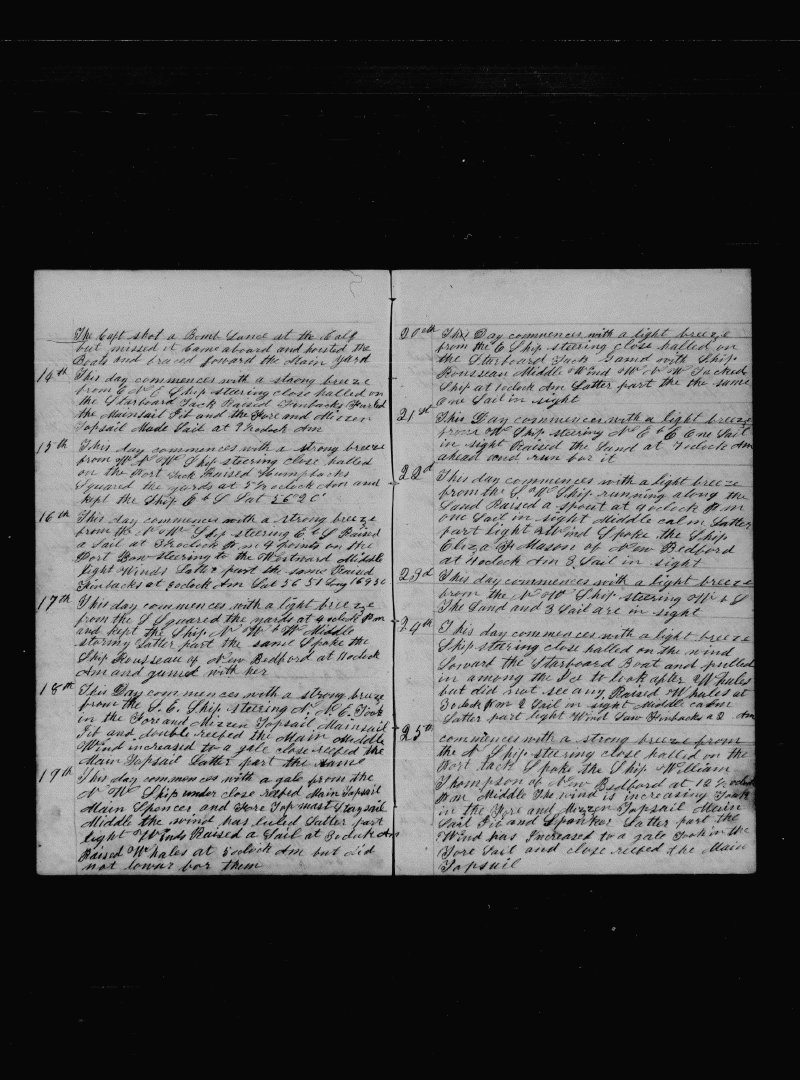 The Capt shot a Bomb Lance at the Calf
but missed it Came aboard and hoisted the
Boats and braced forward the Main Yard
14th This day commences with a strong breeze
from E N E Ship steering close halled on
the Starboard Tack Raised Finbacks Furled
the Mainsail Jib and the Fore and Mizzen
Topsail Made Sail at oclock Am
15th This day commences with a strong breeze
from N W Ship steering close halled
on the Port Tack Raised Humpbacks
Squared the yards at 5 oclock Am and
kept the Ship E & S Lat 56 20'
16th This day commences with a strong breeze
from the N W Ship steering E & S Raised
a Sail at oclock P.m 4 points on the
Port Bow steering to the Westward Middle
light Winds Latter part the same Raised
Finbacks at 9oclock Am Lat 56 51 Long
17th This day commences with a light breeze
from the S Squared the yards at 4 oclock Pm
and kept the Ship N W & W Middle
stormy Latter part the same Spoke the
Ship Rousseau of New Bedford at 11 oclock
Am and gamed with her
18th This Day commences with a strong breeze
from the S. E. Ship steering N. N. E. Took
in the Fore and Mizzen Topsail Mainsail
Jib and double reefed the Main Middle
Wind increased to a gale close reefed the
Main Topsail Latter part the same
19th This day commences with a gale from the
N W Ship under close reefed Main Topsail
Main Spencer and Fore Top mast Staysail
Middle the wind has luled Latter part
light Winds Raised a Sail at 3oclock Am
Raised Whales at 5oclock Am but did
not lower for them
20eth This Day commences with a light breeze
from the E Ship steering close halled on
the Starboard Tack Gamd with Ship
Rousseau Middle Wind W N W Tacked
Ship at 1oclock Am Latter part the the same
one Sail in sight
21st This Day commences with a light breeze
from W Ship steering N E & E One Sail
in sight Raised the Land at 7oclock Am
ahead and run for it
22d This day commences with a light breeze
from the S W Ship running along the
Land Raised a spout at 4oclock P.m
one Sail in sight Middle calm Latter
part light Wind Spoke the Ship
Eliza F Mason of New Bedford
at 11oclock Am 3 Sail in sight
23d This day commences with a light breeze
from the N W Ship steering W & S
The Land and 3 Sail are in sight
24th This day commences with a light breeze
Ship staring close halled on the wind
Lowart the Starboard Boat and pulled
in among the Ice to look after Whales
but did not see any Raised Whales at
3oclock Pm 2 Sail in sight Middle calm
Latter part light Wind Saw Finbacks a 2 Am
25th commences with a strong breeze from
the N Ship steering close halled on the
Port tack Spoke the Ship William
Thompson of New Bedford at 12 ½ oclock
P.m Middle Ths wind is increasing Took
in the Fore and Mizzen Topsail Main
Sail Jib and Spanker Latter part the
Wind has Increased to a gale Took in the
Fore Sail and close reefed the Main
Topsail